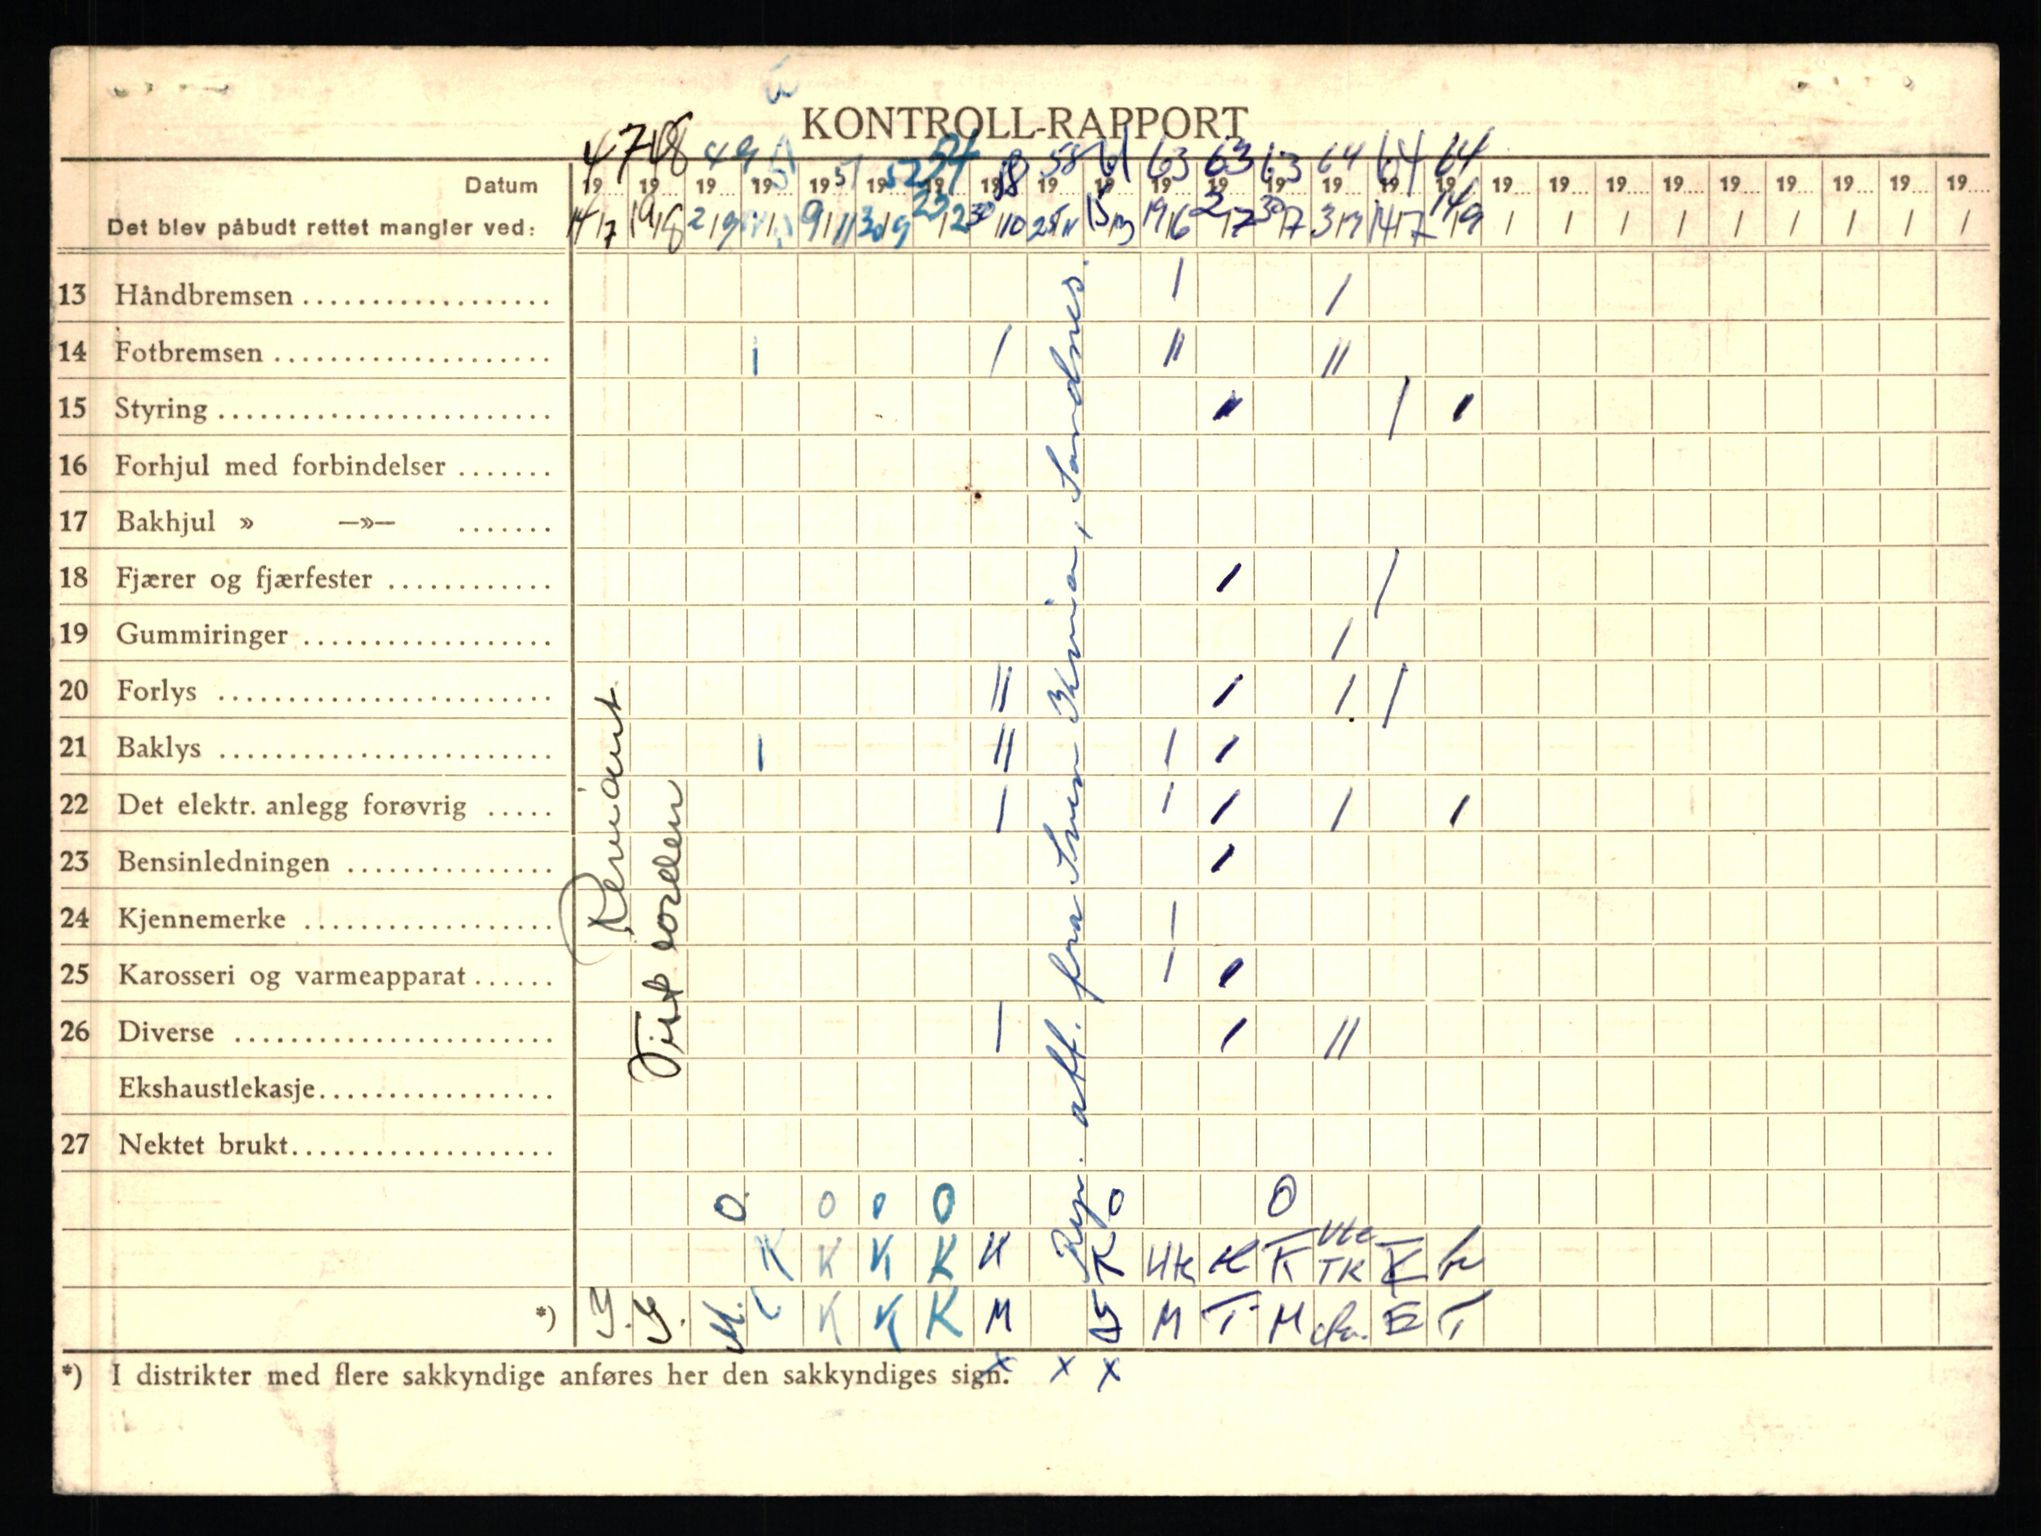 KONTROLL-RAPPORT
47 48 49 51 52 54 58 58 61 63 63 63 64 64 64
Datum 19 19 19 19 19 19 19 19 19 19 19 19 19 19 19 19 19 19 19 19 19 19 19 19 19
Det blev påbudt rettet mangler ved: 14/7 19/8 2/9 9/11 30/9 23/12 30/10 25/11 15/3 19/6 2/7 30/7 3/3 14/7 14/9 / / / / / / / / /
13 Håndbremsen I I
14 Fotbremsen I I II II
15 Styring I I I
16 Forhjul med forbindelser
17 Bakhjul » —»—
18 Fjærer og fjærfester I I
19 Gummiringer I
20 Forlys II I I I
21 Baklys I II I I
22 Det elektr. anlegg forøvrig I I I I I
23 Bensinledningen I
24 Kjennemerke I
25 Karosseri og varmeapparat I I
26 Diverse I I II
Ekshaustlekasje
27 Nektet brukt
Rep. att. fra Sven Kvia, Sandnes.
O O O O O O
K K K K K K Utk K Utk TK K
*) Y. Y. M. K K K M M T M E T
*) I distrikter med flere sakkyndige anføres her den sakkyndiges sign. x x x